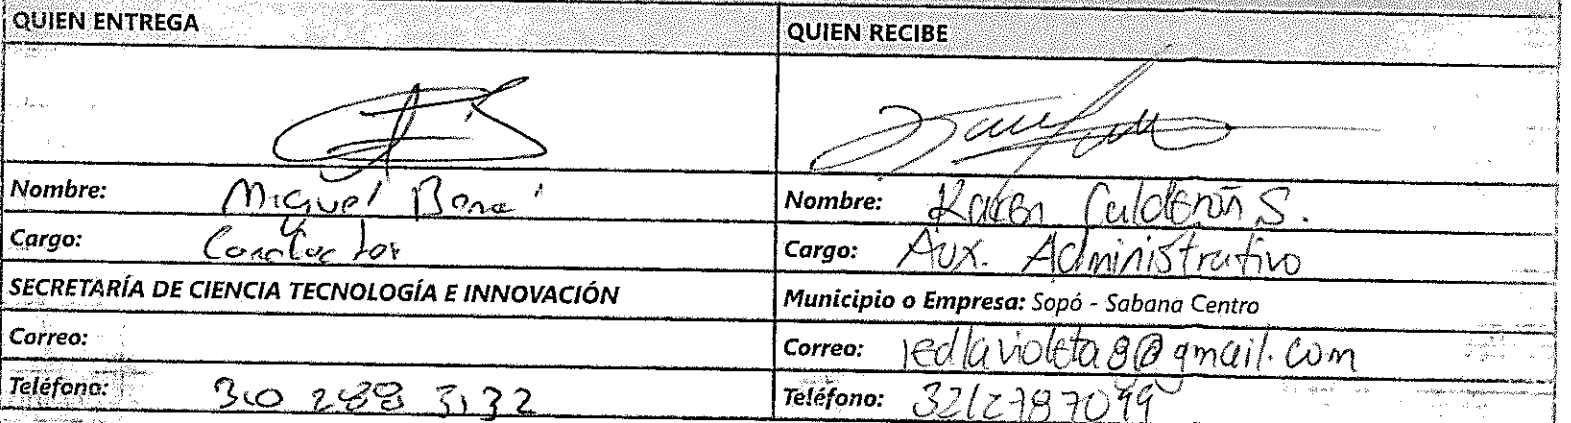 QUIEN ENTREGA
QUIEN RECIBE
Nombre: Miguel
Nombre: Karen Calderón S.
Cargo: Conductor
Cargo: Aux. Administrativo
SECRETARÍA DE CIENCIA TECNOLOGÍA E INNOVACIÓN
Municipio o Empresa: Sopó - Sabana Centro
Correo:
Correo: iedlavioleta8@gmail.com
Teléfono: 310 288 3132
Teléfono: 3212787099